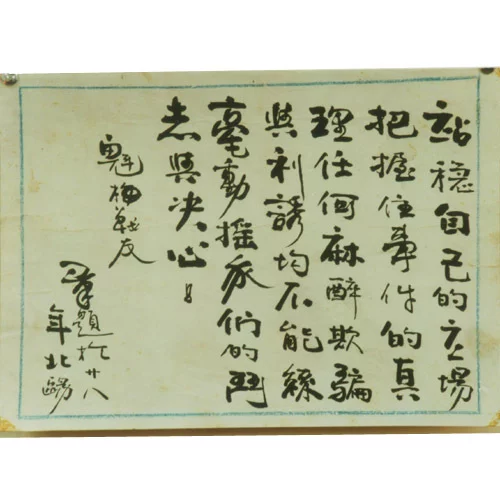 站穩自己的立場
把握住事件的真
理任何麻醉欺騙
與利誘均不能絲
毫動搖我們的鬥
志與决心！
魁梅戰友
題於廿八
年北碭